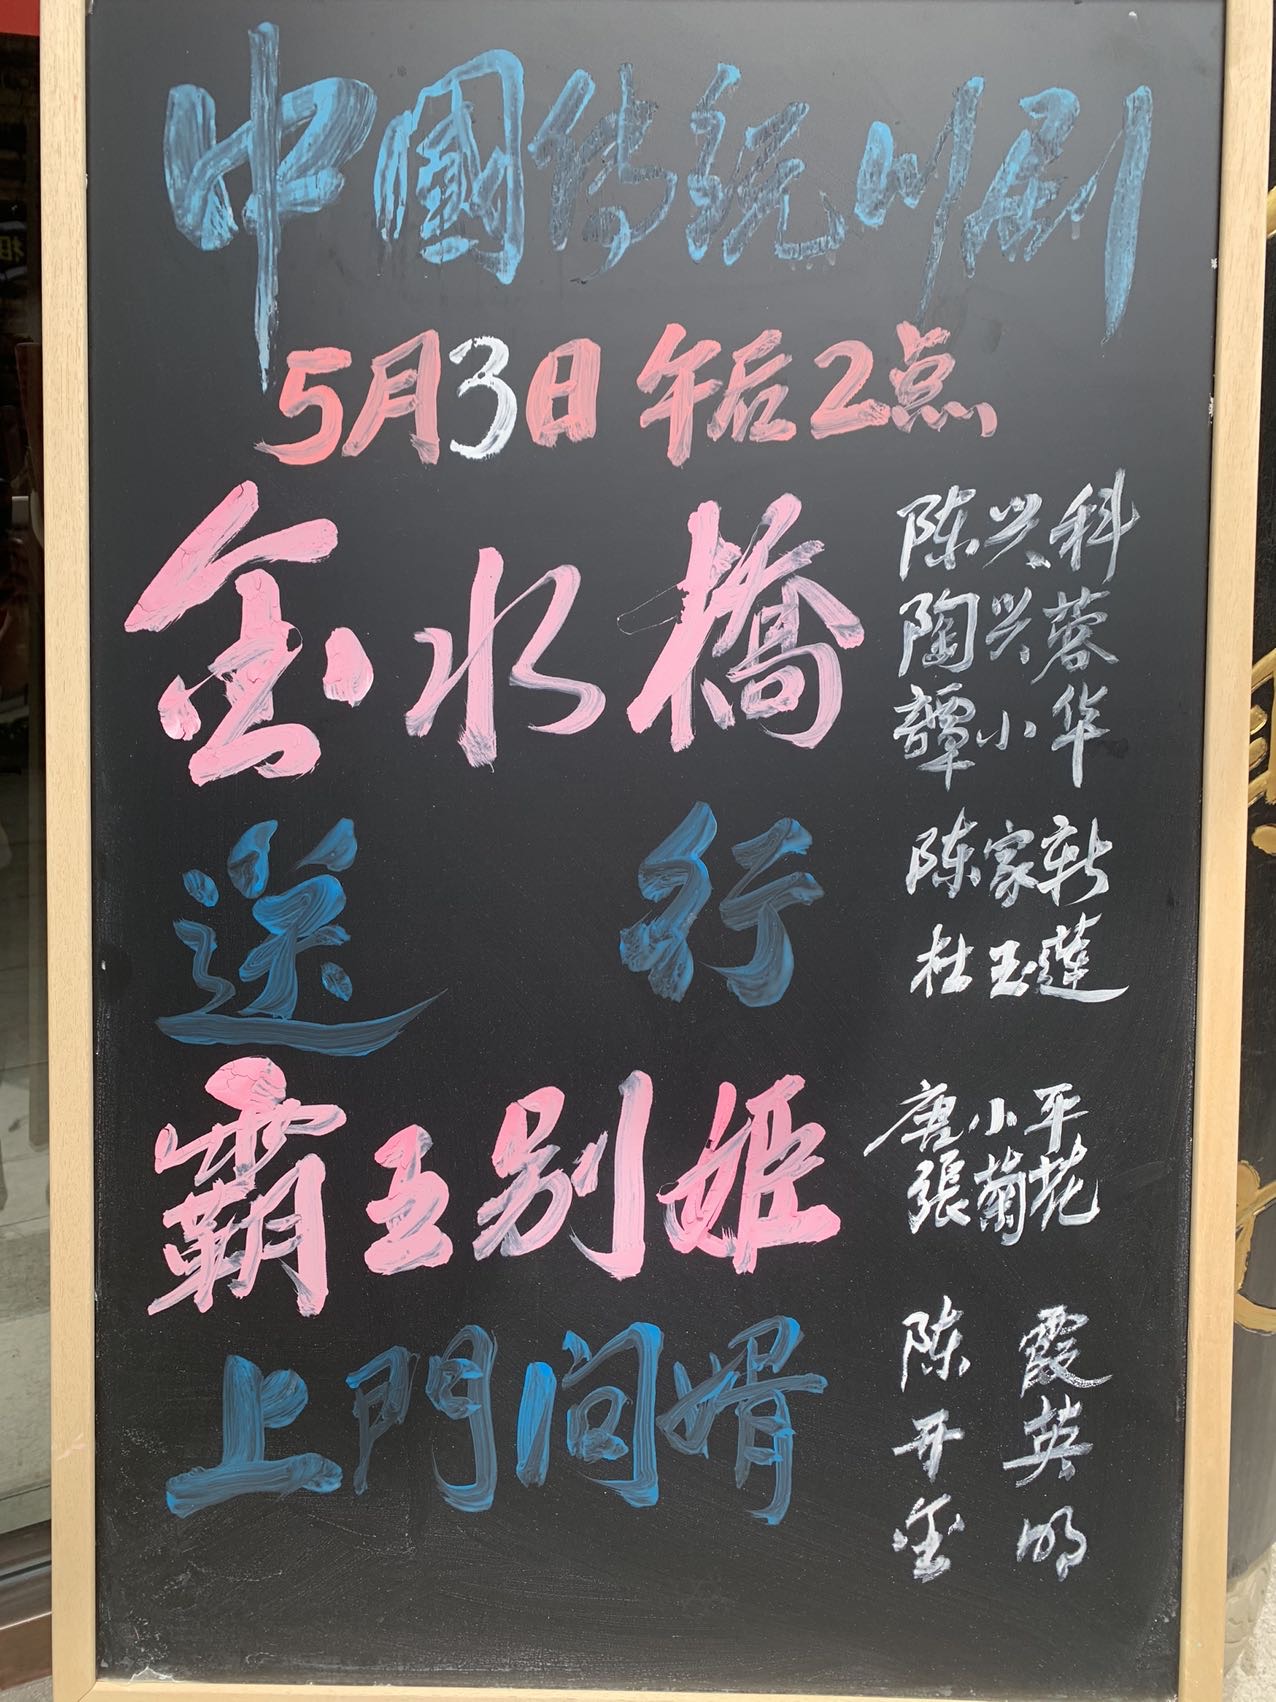 中國传统川剧
5月3日 午后2点
金水橋
陈兴科
陶兴蓉
譚小华
送行
陈家新
杜玉蓮
霸王别姬
唐小平
張菊花
上門问婿
陈霞
开英
金明